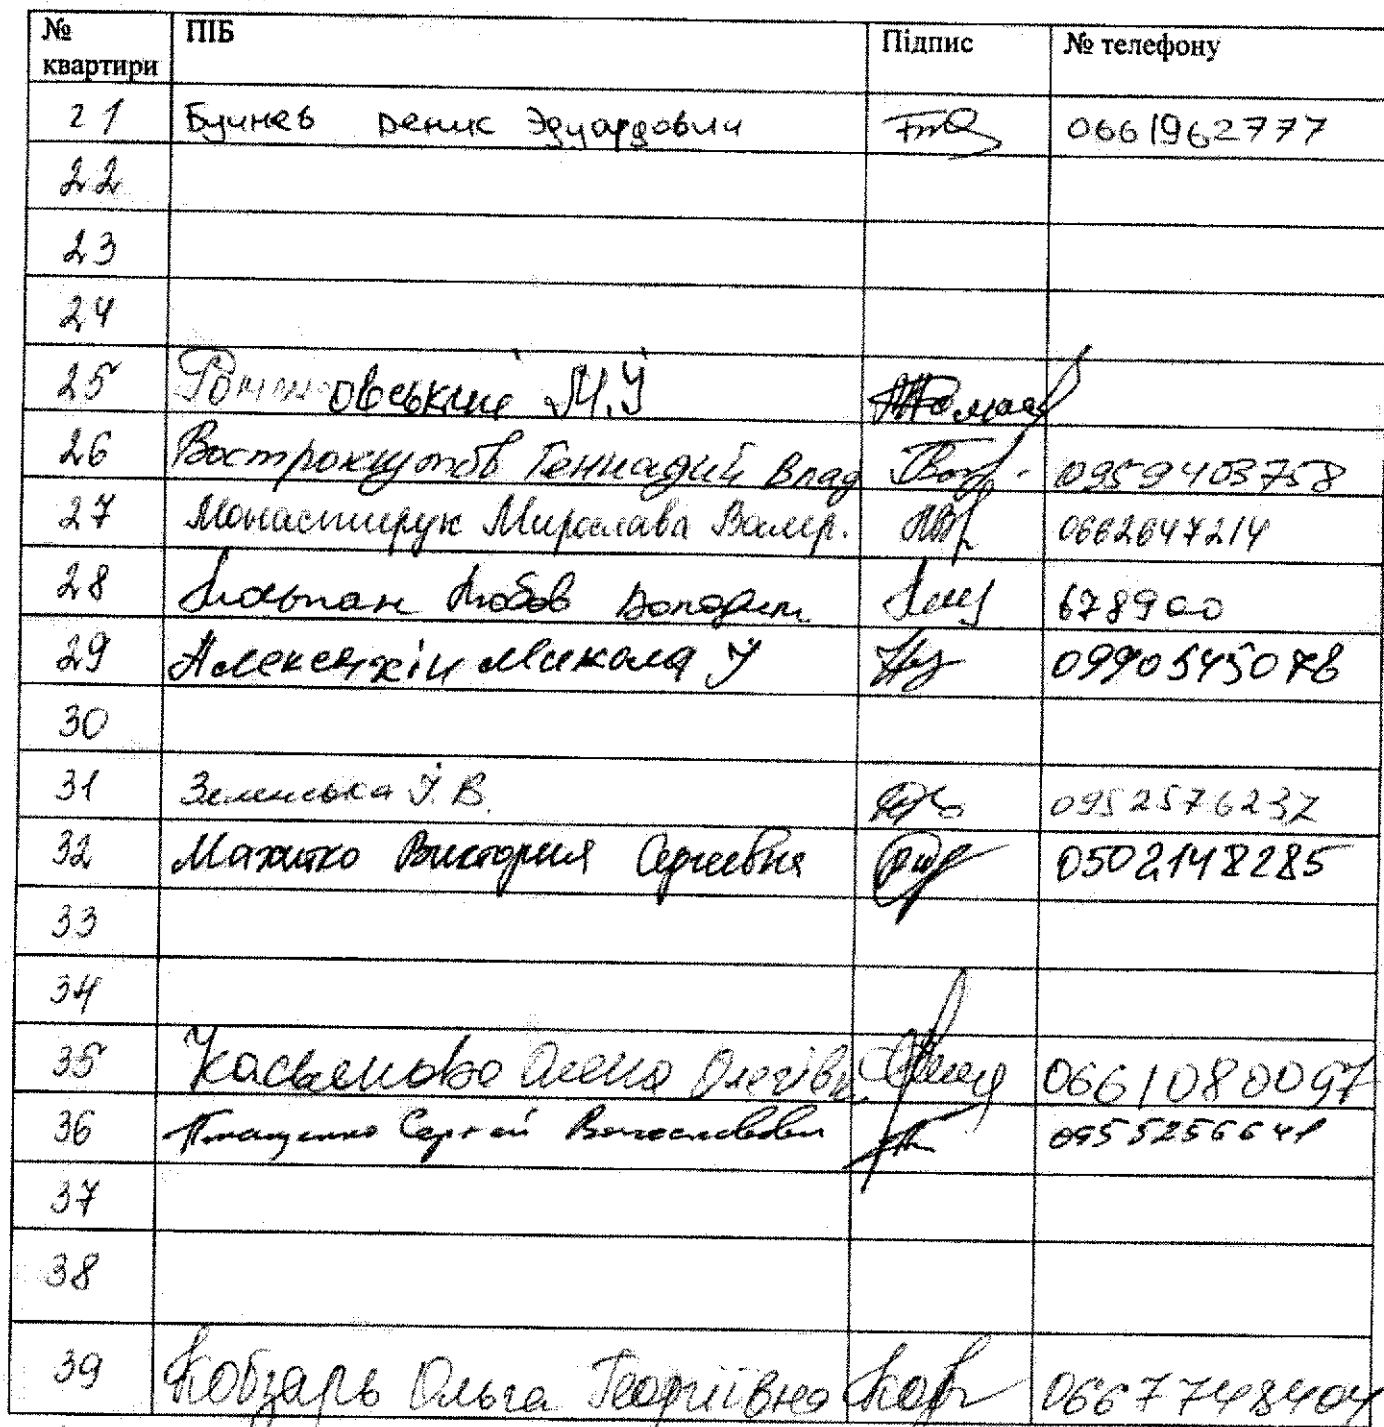 № квартири ПІБ Підпис № телефону
21 Бучнев Денис Эдуардович 0661962777
22
23
24
25 М.Й
26 Вострокнутов Геннадий Влад 0959403758
27 Монастирук Мирослава Валер. 0662647214
28 Любов 678900
29 Микола У 0990545078
30
31 Зеленська І.В. 0952576237
32 Махитко Виктория Сергеевна 0502148285
33
34
35 Касьянова Олена Олегівн. 0661080097
36 Сергей 0955256641
37
38
39 Кобзарь Ольга Георгіївна 0667748404